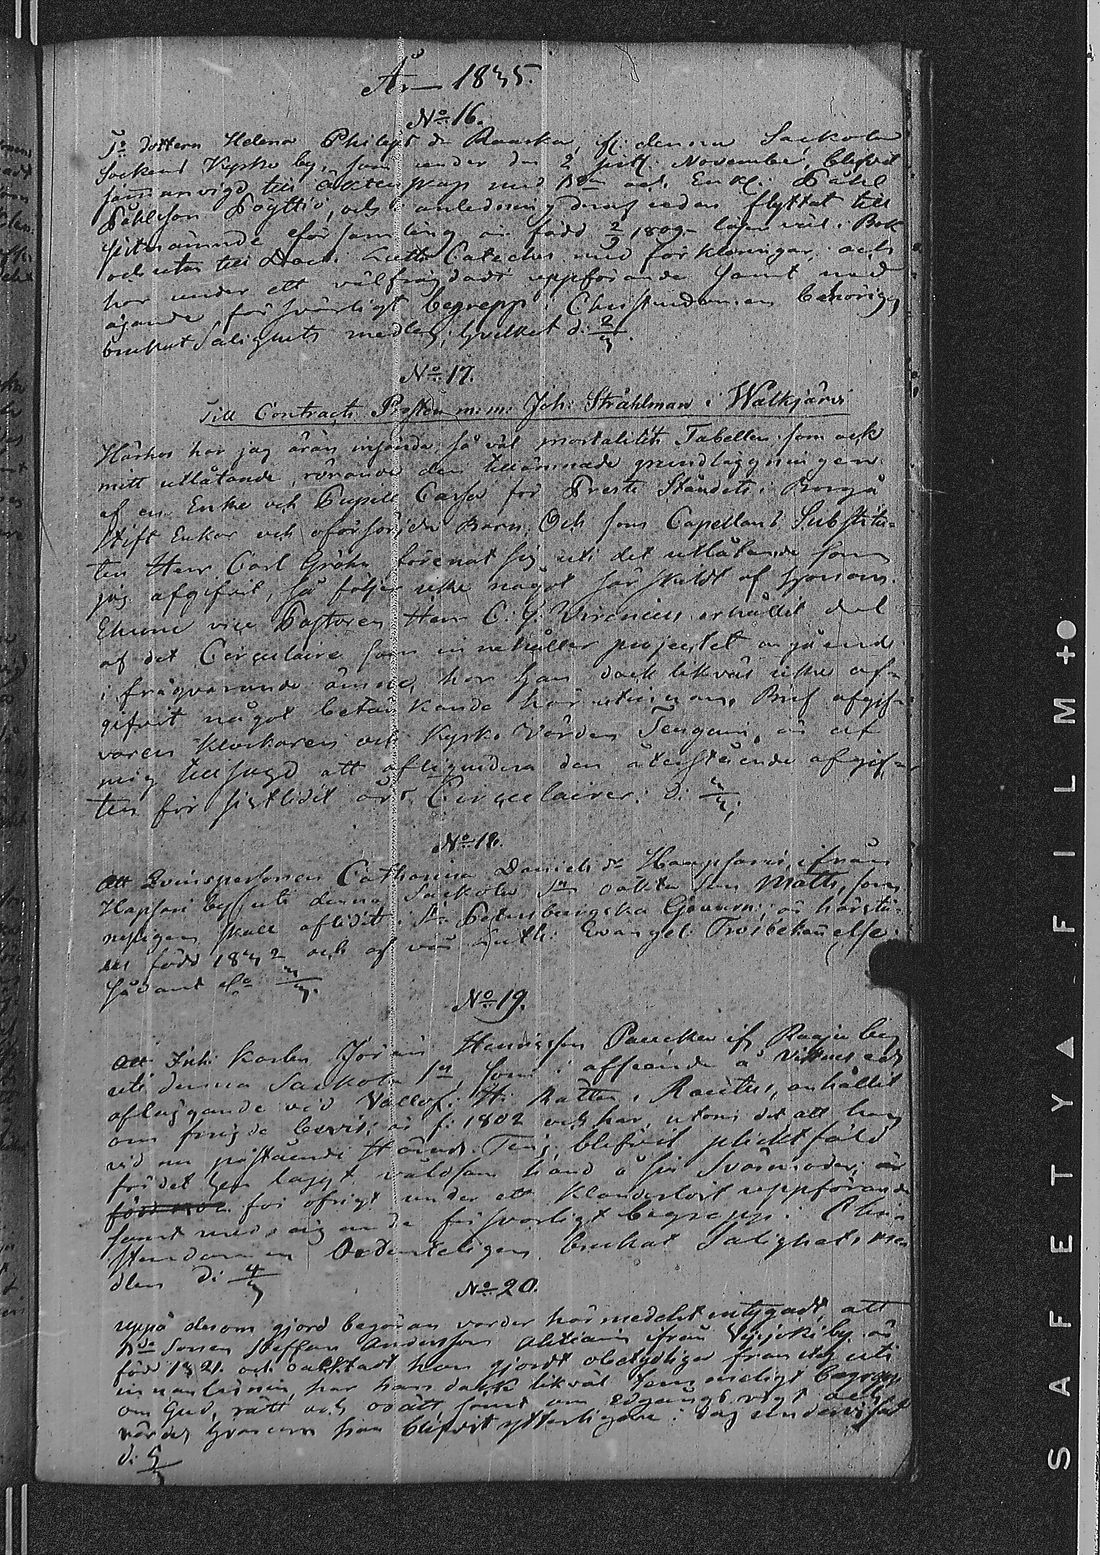 År 1835.
No 16.
Jo dottern Helena Philipsdr Raaska, fr denna Sackola
Sockens Kyrko by, som under den 2 sistl. November, blifvit
sammanvigd till äktenskap med Bde och Enkl. Påhl
Påhlsson Pöyttiö, och i anledning deraf sedan flyttat till
sistnämnde församling är född 1809 läser väl i Bok
och utan till Doct. Luth. Cateches med förklaringar, och
har under ett välfrägdadt uppförande samt med
ägande försvarligt begrepp i Christendomen behörigen
brukat Salighets medlen, hvilket d. 2/3.
No 17.
Till Contracts Prosten m.m. Joh. Stråhlman i Walkjärvi
Härhos har jag äran insända så väl mortalitets Tabellen som ock
mitt utlåtande, rörande den tillämnade grundläggningen
af en Enke och Pupill Cassa för Preste Ståndets i Borgå
Stift Enkor och oförsörjda Barn. Och som Capellans Substitu-
ten Herr Carl Gröhn förenat sig uti det utlåtande som
jag afgifvit, så följer icke något särskildt af honom.
Ehuru vice Pastoren Herr C. G. Wirenius erhållit del
af det Circulaire som innehåller projectet angående
i frågavarande ämne, har han dock likväl icke af-
gifvit något betänkande häruti. Bref afgif-
varen Klockaren och Kyrko Värden Tengén, är af
mig tillsagd att afliqvidera den återstående afgif-
ten för sistlidit års Circulairer. D. 3/3.
No 18.
Att Qvinspersonen Catharina Danielsdr Haapsari ifrån
Hapsari by uti denna Sackola Sn oäkta Son Matts, som
nyligen skall aflidit i St Petersburgska Gouvern. är härstä-
des född 1832 och af vår Luth. Evangel. Trosbekännelse.
Sådant d. 3/3.
No 19.
Att Inh. karlen Jöran Henricsson Paucku fr Raaju by
uti denna Sackola Sn som i afseende å vittnes ed
afläggande vid Vällof. Hr Rätten i Rautus, anhållit
om frägde bevis, är f. 1802 och har, utom det att han
vid nu påstående Härads Ting, blifvit pliktfäld
för det han laggt våldsam hand å sin Svärmoder, är
för öfrigt under ett klanderlöst uppförande
samt med ägande försvarligt begrepp i Chri-
stendomen Ordenteligen brukat Salighets me
dlen d. 4/3
No 20.
uppå derom gjord begäran varder härmedelst intygadt, att
Bde Sonen Steffan Andersson Ahtiain ifrån Vyiski by är
född 1821. och oaktadt han gjordt obetydliga framsteg uti
innanläsning, har han dock likväl temmeligt begrepp
om Gud, rätt och orätt samt om Edgångs vigt och
värde, hvarom han blifvit ytterligare i dag undervisat
d. 5/3